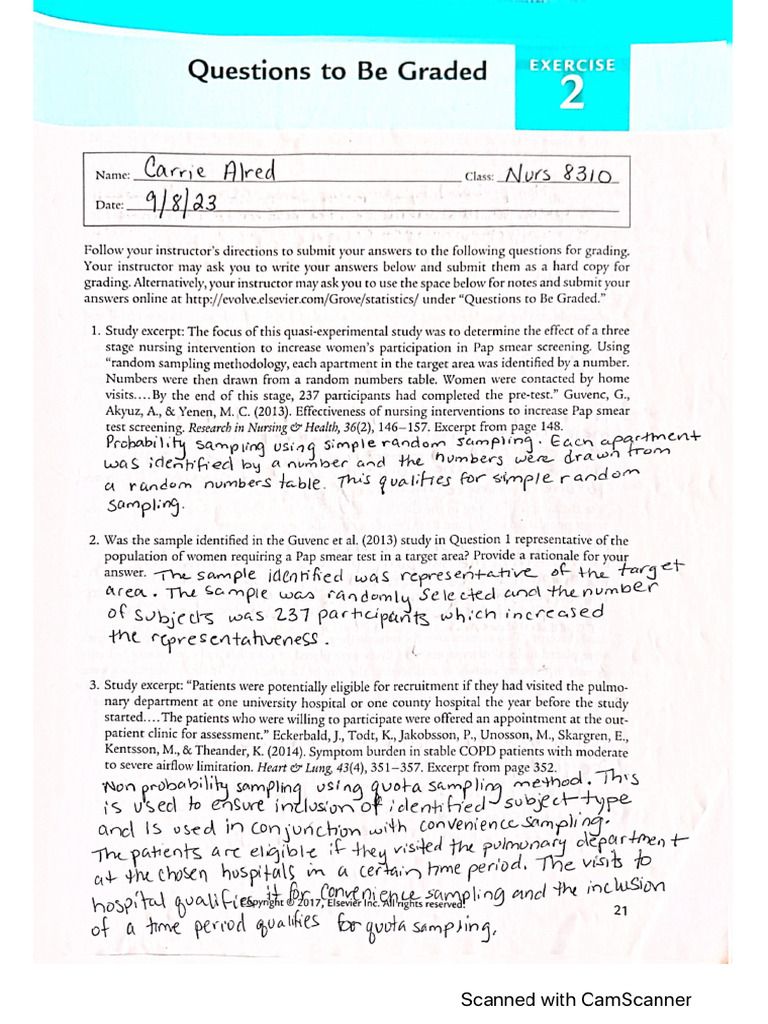 Questions to Be Graded
EXERCISE
2
Name: Carrie Alred
Class: Nurs 8310
Date: 9/8/23
Follow your instructor's directions to submit your answers to the following questions for grading.
Your instructor may ask you to write your answers below and submit them as a hard copy for
grading. Alternatively, your instructor may ask you to use the space below for notes and submit your
answers online at http://evolve.elsevier.com/Grove/statistics/ under "Questions to Be Graded."
1. Study excerpt: The focus of this quasi-experimental study was to determine the effect of a three
stage nursing intervention to increase women's participation in Pap smear screening. Using
"random sampling methodology, each apartment in the target area was identified by a number.
Numbers were then drawn from a random numbers table. Women were contacted by home
visits....By the end of this stage, 237 participants had completed the pre-test." Guvenc, G.,
Akyuz, A., & Yenen, M. C. (2013). Effectiveness of nursing interventions to increase Pap smear
test screening. Research in Nursing & Health, 36(2), 146–157. Excerpt from page 148.
Probability sampling using simple random sampling. Each apartment
was identified by a number and the numbers were drawn from
a random numbers table. This qualifies for simple random
sampling.
2. Was the sample identified in the Guvenc et al. (2013) study in Question 1 representative of the
population of women requiring a Pap smear test in a target area? Provide a rationale for your
answer. The sample identified was representative of the target
area. The sample was randomly selected and the number
of subjects was 237 participants which increased
the representativeness.
3. Study excerpt: "Patients were potentially eligible for recruitment if they had visited the pulmo-
nary department at one university hospital or one county hospital the year before the study
started....The patients who were willing to participate were offered an appointment at the out-
patient clinic for assessment." Eckerbald, J., Todt, K., Jakobsson, P., Unosson, M., Skargren, E.,
Kentsson, M., & Theander, K. (2014). Symptom burden in stable COPD patients with moderate
to severe airflow limitation. Heart & Lung, 43(4), 351–357. Excerpt from page 352.
Non probability sampling using quota sampling method. This
is used to ensure inclusion of identified subject-type
and is used in conjunction with convenience sampling.
The patients are eligible if they visited the pulmonary department
at the chosen hospitals in a certain time period. The visits to
hospital qualifies it for convenience sampling and the inclusion
Copyright © 2017, Elsevier Inc. All rights reserved.
of a time period qualifies for quota sampling.
21
Scanned with CamScanner